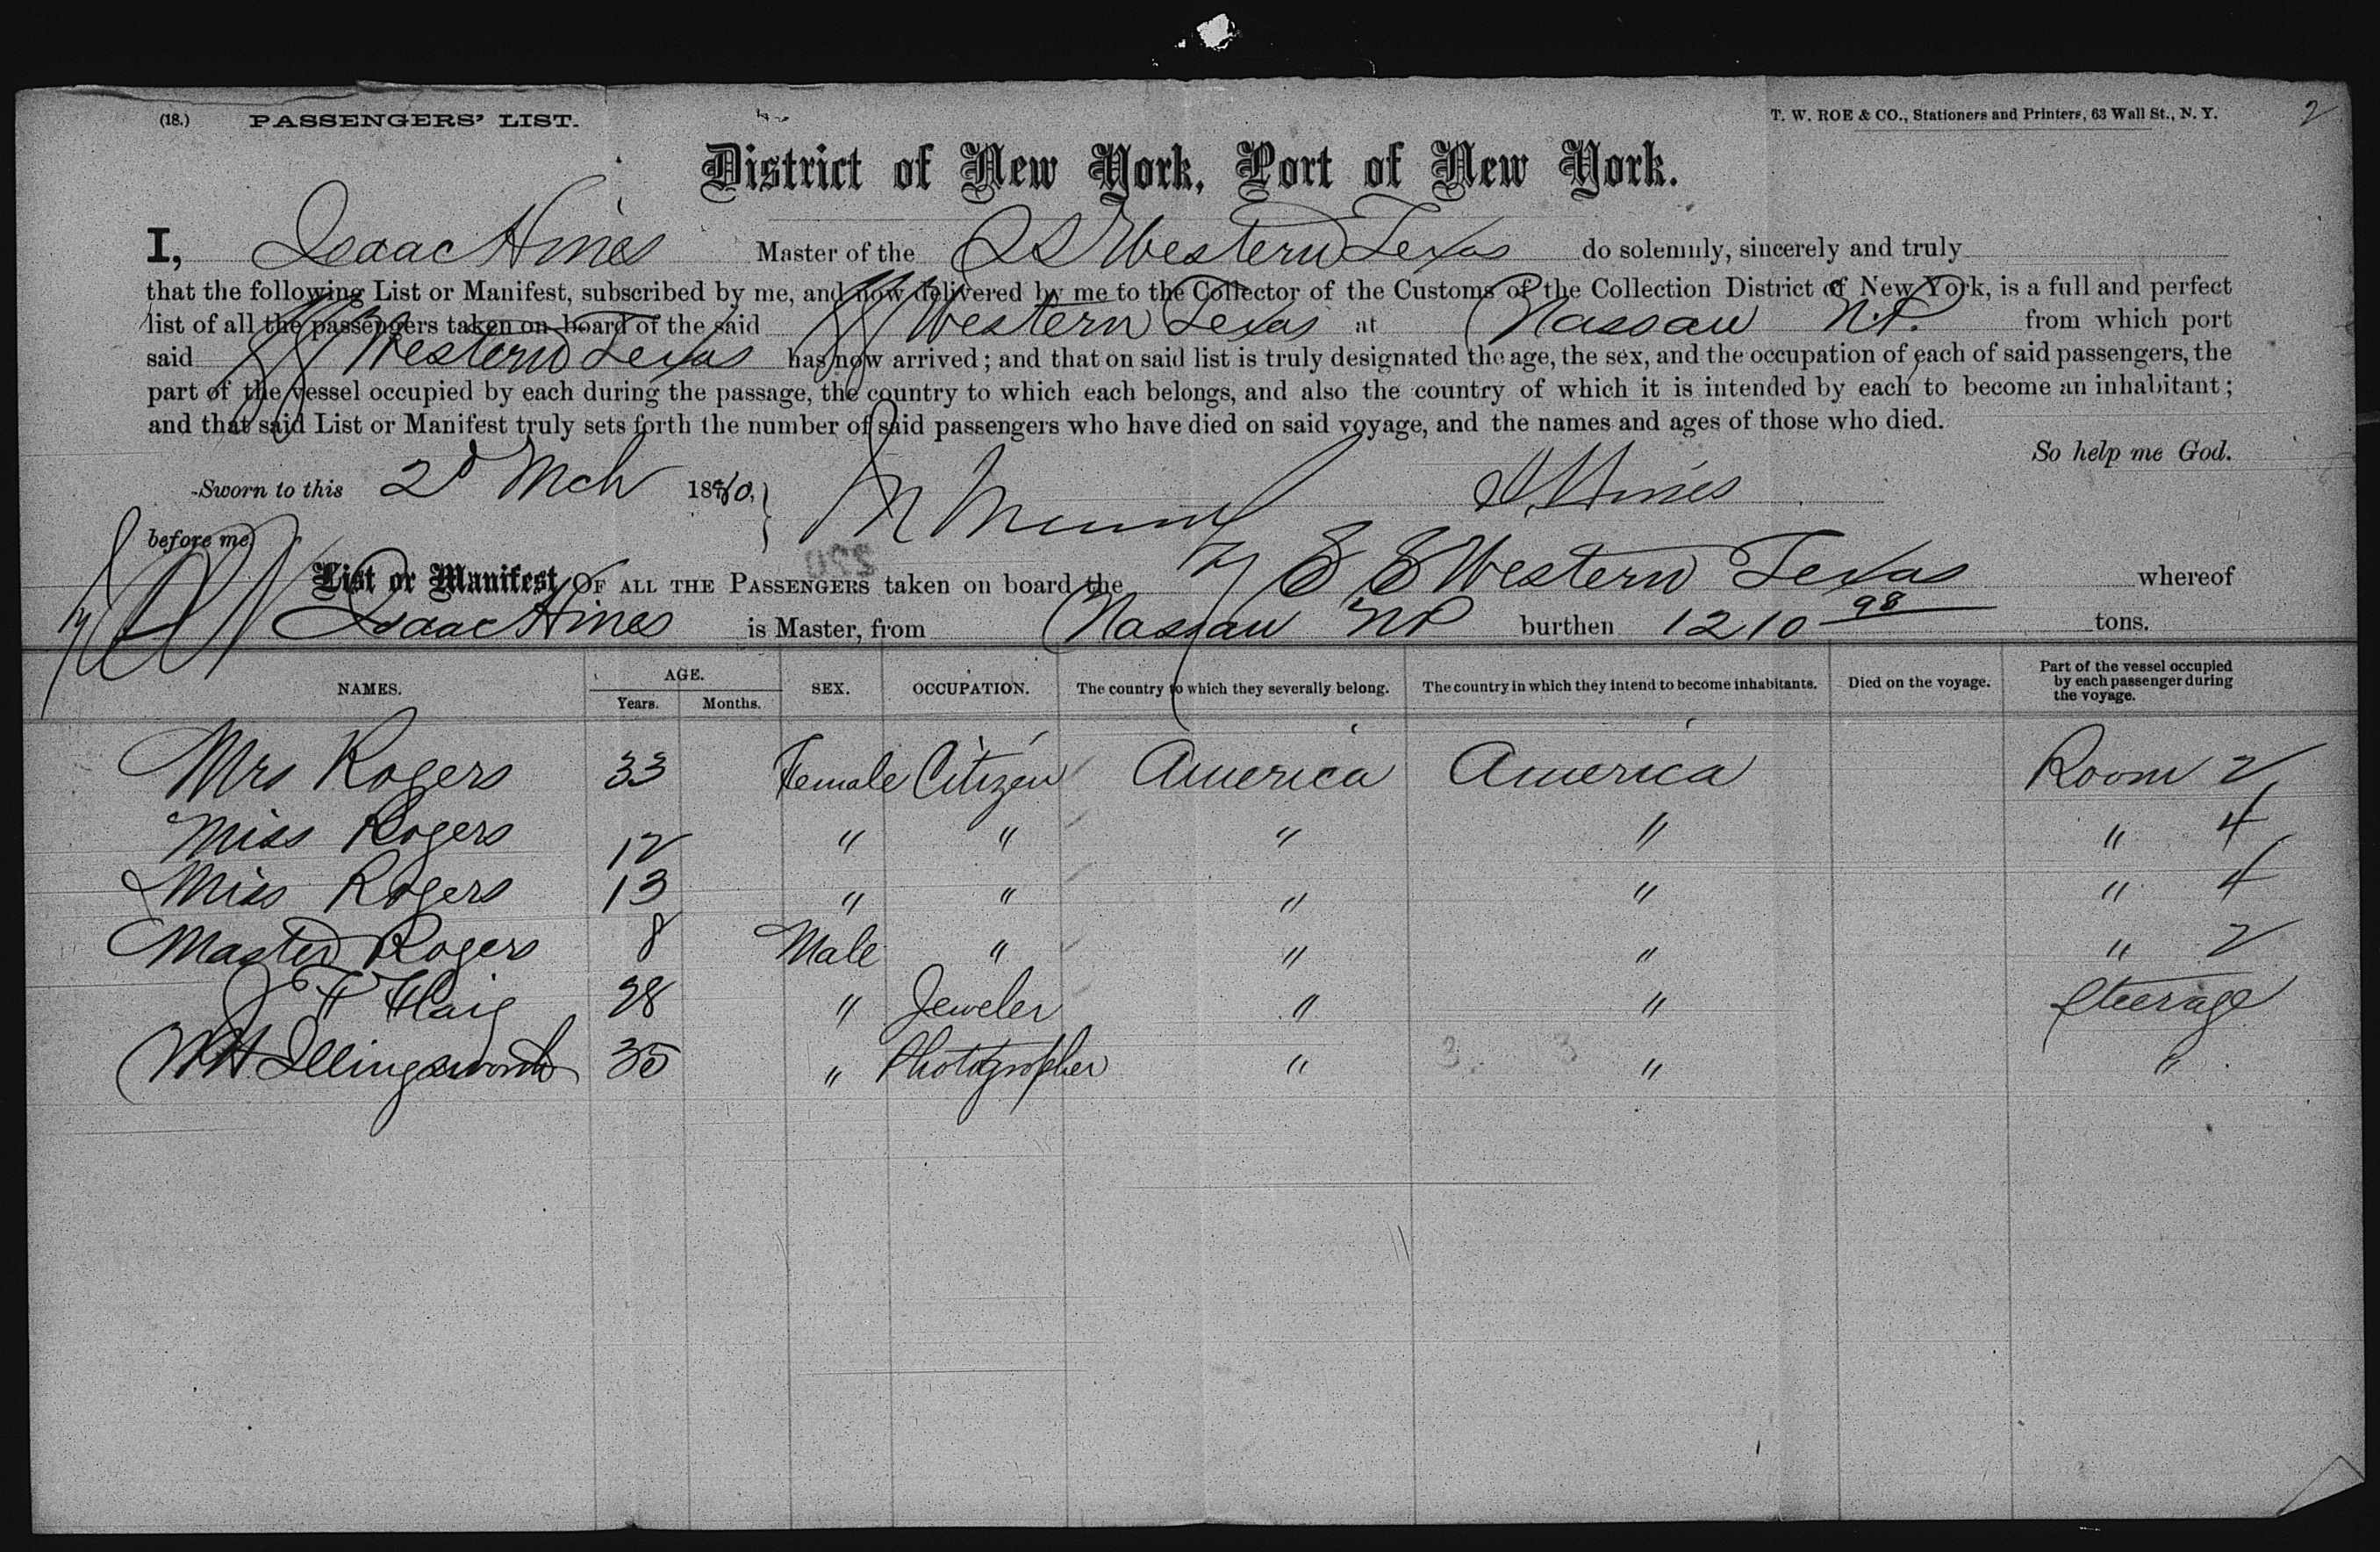 (18.) PASSENGERS' LIST. T. W. ROE & CO., Stationers and Printers, 63 Wall St., N. Y. 2
District of New York, Port of New York.
I, Isaac Hines Master of the SS Western Texas do solemnly, sincerely and truly
that the following List or Manifest, subscribed by me, and now delivered by me to the Collector of the Customs of the Collection District of New York, is a full and perfect
list of all the passengers taken on board of the said SS Western Texas at Nassau N.P. from which port
said SS Western Texas has now arrived; and that on said list is truly designated the age, the sex, and the occupation of each of said passengers, the
part of the vessel occupied by each during the passage, the country to which each belongs, and also the country of which it is intended by each to become an inhabitant;
and that said List or Manifest truly sets forth the number of said passengers who have died on said voyage, and the names and ages of those who died.
So help me God.
Sworn to this 2d Mch 1880, I. Hines
before me
List or Manifest OF ALL THE PASSENGERS taken on board the SS Western Texas whereof
Isaac Hines is Master, from Nassau NP burthen 1210 98 tons.
NAMES. AGE. Years. Months. SEX. OCCUPATION. The country to which they severally belong. The country in which they intend to become inhabitants. Died on the voyage. Part of the vessel occupied by each passenger during the voyage.
Mrs Rogers 33 Female Citizen America America Room 2
Miss Rogers 12 " " " " " 4
Miss Rogers 13 " " " " " 4
Master Rogers 8 Male " " " " 2
J F Haig 28 " Jeweler " " Steerage
WH Illingsworth 35 " Photographer " " "